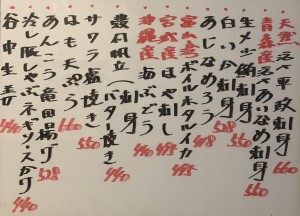 天然 活〆平政刺身 550
青森産 活〆あいなめ刺身 550
生メジ鮪刺身 660
白いか刺身 528
あじなめろう 418
富山産 ボイルホタルイカ 495
宮城産 ほやさし 495
沖縄産 海ぶどう 440
農月帆立(刺身 バター焼き)
サワラ塩焼き 550
はも天ぷら 660
あんこう竜田揚げ 528
冷し豚しゃぶネギソースがけ 440
谷中生姜 440